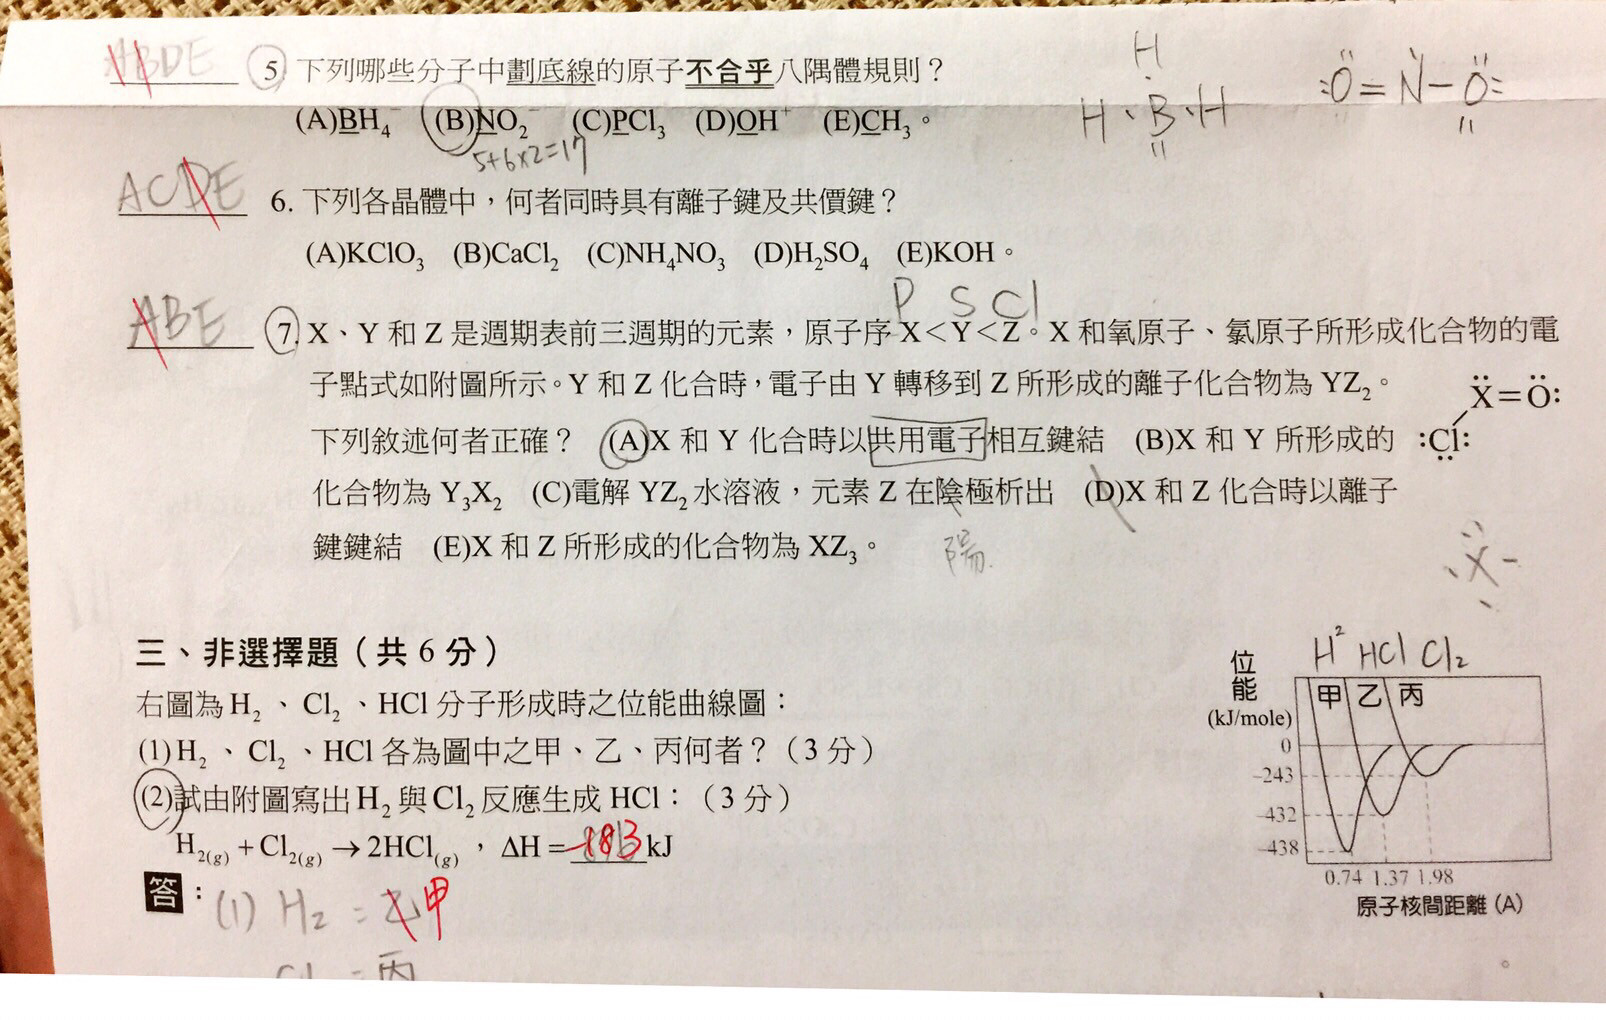 ABDE 5. 下列哪些分子中劃底線的原子不合乎八隅體規則？
(A)BH₄⁻ (B)NO₂⁻ (C)PCl₃ (D)OH⁺ (E)CH₃。
5+6×2=17
H
H B H
:O=N-O:
ACDE 6. 下列各晶體中，何者同時具有離子鍵及共價鍵？
(A)KClO₃ (B)CaCl₂ (C)NH₄NO₃ (D)H₂SO₄ (E)KOH。
P S Cl
ABE 7. X、Y 和 Z 是週期表前三週期的元素，原子序 X<Y<Z。X 和氧原子、氯原子所形成化合物的電
子點式如附圖所示。Y 和 Z 化合時，電子由 Y 轉移到 Z 所形成的離子化合物為 YZ₂。
下列敘述何者正確？ (A)X 和 Y 化合時以共用電子相互鍵結 (B)X 和 Y 所形成的
化合物為 Y₃X₂ (C)電解 YZ₂水溶液，元素 Z 在陰極析出 (D)X 和 Z 化合時以離子
鍵鍵結 (E)X 和 Z 所形成的化合物為 XZ₃。
陽
X=O:
:Cl:
X
三、非選擇題（共 6 分）
右圖為 H₂、Cl₂、HCl 分子形成時之位能曲線圖：
(1) H₂、Cl₂、HCl 各為圖中之甲、乙、丙何者？（3 分）
(2)試由附圖寫出 H₂ 與 Cl₂ 反應生成 HCl：（3 分）
H₂(g) + Cl₂(g) → 2HCl(g)，ΔH = -183 kJ
答：(1) H₂ = 乙 甲
Cl = 丙
H² HCl Cl₂
位能
(kJ/mole)
甲 乙 丙
0
-243
-432
-438
0.74 1.37 1.98
原子核間距離 (A)